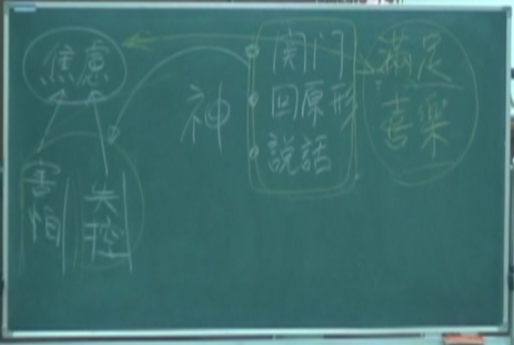 焦慮
害怕
失控
神
関门
回原形
說話
滿足
喜樂